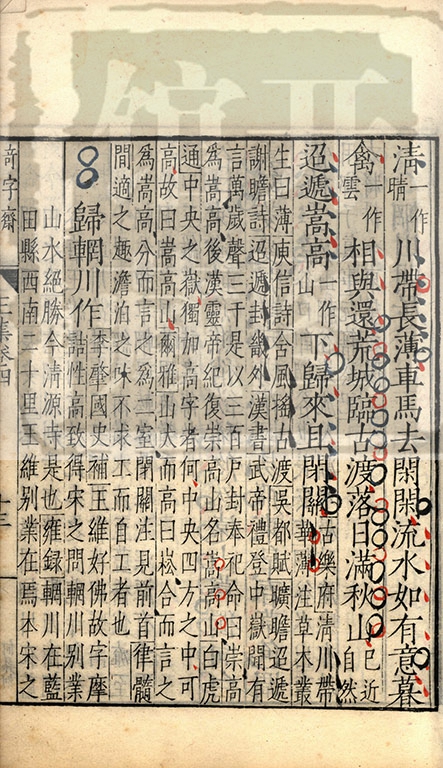 清一作晴川帶長薄車馬去閑閑流水如有意暮
禽一作雲相與還荒城臨古渡落日滿秋山已近自然
迢遞嵩高一作山下歸來且閉關古樂府清川帶華薄注草木叢
生曰薄庾信詩含風搖古渡吳都賦曠瞻迢遞
謝瞻詩迢遞封畿外漢書武帝禮登中嶽聞有
言萬歲聲三于是以三百戶封奉祀命曰崇高
為嵩高後漢靈帝紀復崇高山名嵩高山白虎
通中央之嶽獨加高字者何中央四方之中可
高故曰嵩高山爾雅山大而高曰崧合而言之
為嵩高分而言之為二室閉關注見前首律髓
間適之趣澹泊之味不求工而自工者也
歸輞川作李肇國史補王維好佛故字摩
詰性高致得宋之問輞川別業
山水絕勝今清源寺是也雍錄輞川在藍
田縣西南二十里王維別業在焉本宋之
奇字齋
卷四
十三